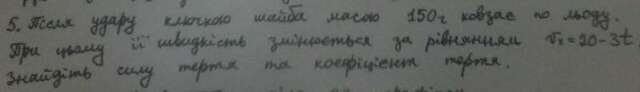 5. Після удару ключкою шайба масою 150г ковзає по льоду.
При цьому її швидкість змінюється за рівнянням vₓ = 20 - 3t.
Знайдіть силу тертя та коефіцієнт тертя.